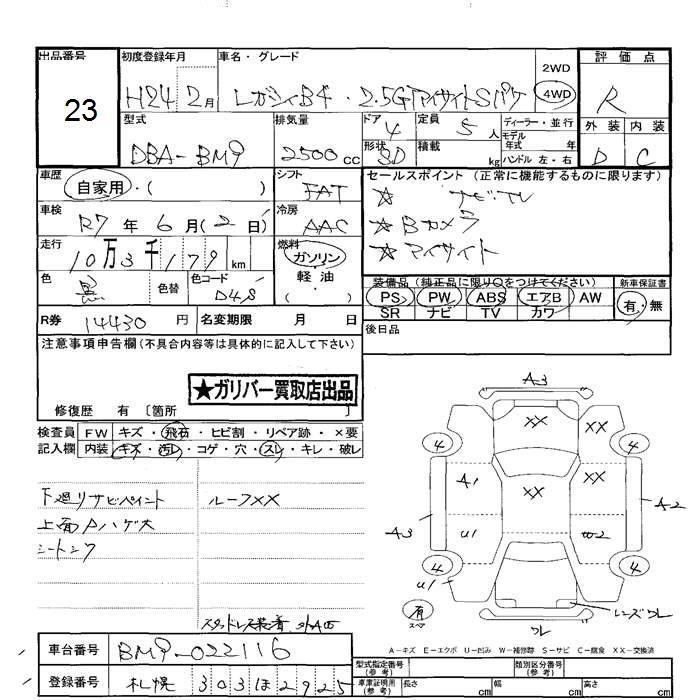 出品番号 初度登録年月 車名・グレード 評価点
23 H24 2月 レガシィB4・2.5GアイサイトSパケ 2WD 4WD R
型式 排気量 ドア 定員 ディーラー・並行 外装 内装
DBA-BM9 2500cc 4 5人 モデル年式 年式
形状 SD 積載 kg ハンドル 左・右 D C
車歴 自家用・( ) シフト FAT セールスポイント(正常に機能するものに限ります)
☆ ナビTV
車検 R7年6月(2日) 冷房 AAC ☆ Bカメラ
☆ アイサイト
走行 10万3千179km 燃料 ガソリン・軽油・( )
色 黒 色替 色コード D4S
装備品(純正品に限り○をつけてください) 新車保証書
PS PW ABS エアB AW 有・無
SR ナビ TV カワ
R券 14430円 名変期限 月 日 後日品
注意事項申告欄(不具合内容等は具体的に記入して下さい)
★ガリバー買取店出品
修復歴 有 〔箇所 〕
検査員記入欄 FW キズ・飛石・ヒビ割・リペア跡・×要
内装 キズ・汚レ・コゲ・穴・スレ・キレ・破レ
下廻リサビペイント ルーフXX
上面Pハゲ大
A3
XX XX
4 4
A1 XX XX
A3 A2
U1 W2
4 4
U1
有 スペア
レンズワレ
ワレ
スタッドレス装着
A-キズ E-エクボ U-凹み W-補修跡 S-サビ C-腐食 XX-交換済
車台番号 BM9-022116
登録番号 札幌 303ほ2925
型式指定番号(参考) 類別区分番号(参考)
車庫証明用(参考) 長さ cm 幅 cm 高さ cm